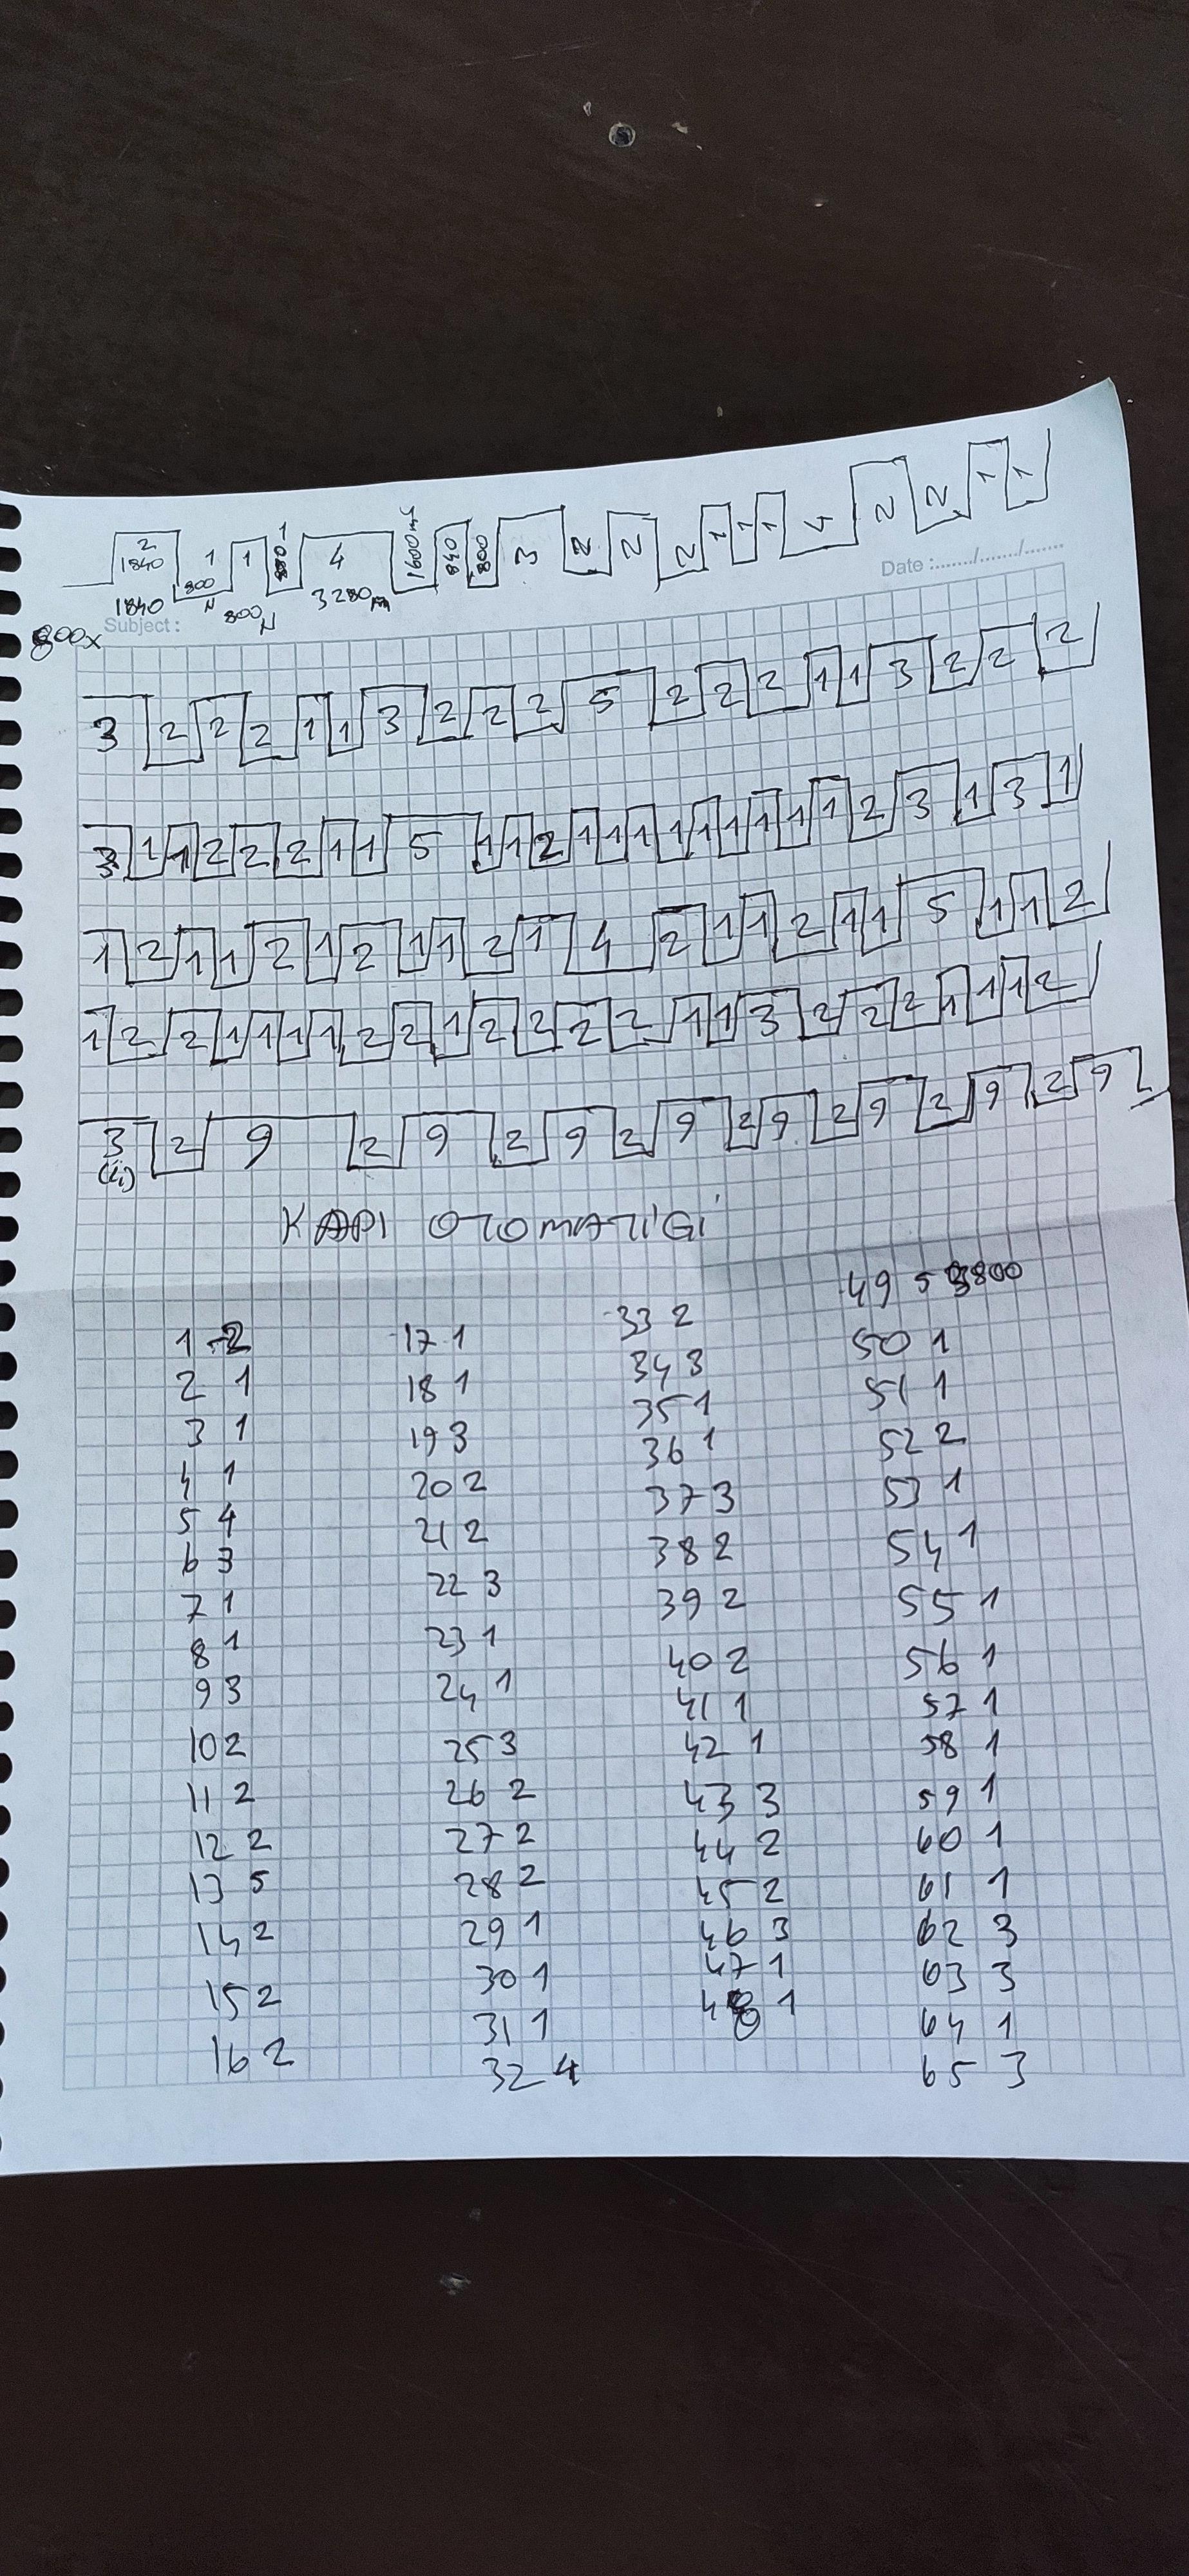 2 1 1 1 4 1600 840 800 3 2 2 2 1 1 1 4 2 2 1 1
1840 800
1840 800 3280
800x
Subject : Date :......./......./.......
3 2 2 2 1 1 3 2 2 2 5 2 2 2 1 1 3 2 2 2
3 1 1 2 2 2 1 1 5 1 1 2 1 1 1 1 1 1 1 1 1 2 3 1 3 1
1 2 1 1 2 1 2 1 1 2 1 4 2 1 1 2 1 1 5 1 1 2
1 2 2 1 1 1 1 2 2 1 2 2 2 2 1 1 3 2 2 2 1 1 1 2
3 2 9 2 9 2 9 2 9 2 9 2 9 2 9 2 9
KAPI OTOMATİĞİ
1 2
2 1
3 1
4 1
5 4
6 3
7 1
8 1
9 3
10 2
11 2
12 2
13 5
14 2
15 2
16 2
17 1
18 1
19 3
20 2
21 2
22 3
23 1
24 1
25 3
26 2
27 2
28 2
29 1
30 1
31 1
32 4
33 2
34 3
35 1
36 1
37 3
38 2
39 2
40 2
41 1
42 1
43 3
44 2
45 2
46 3
47 1
48 1
49 5 3800
50 1
51 1
52 2
53 1
54 1
55 1
56 1
57 1
58 1
59 1
60 1
61 1
62 3
63 3
64 1
65 3